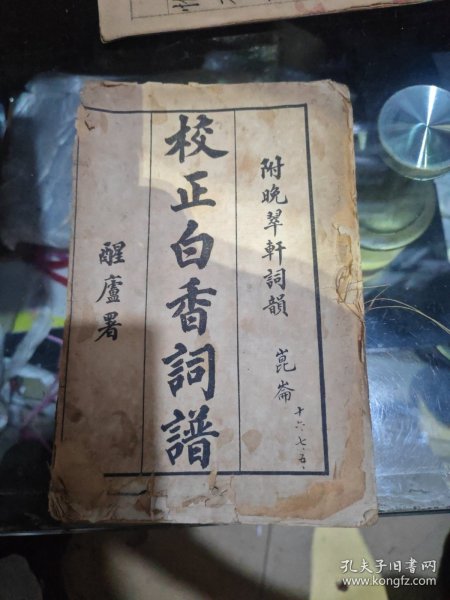 附晚翠軒詞韻
崑崙
十六、七、五、
校正白香詞譜
醒廬署
孔夫子旧书网
www.kongfz.com